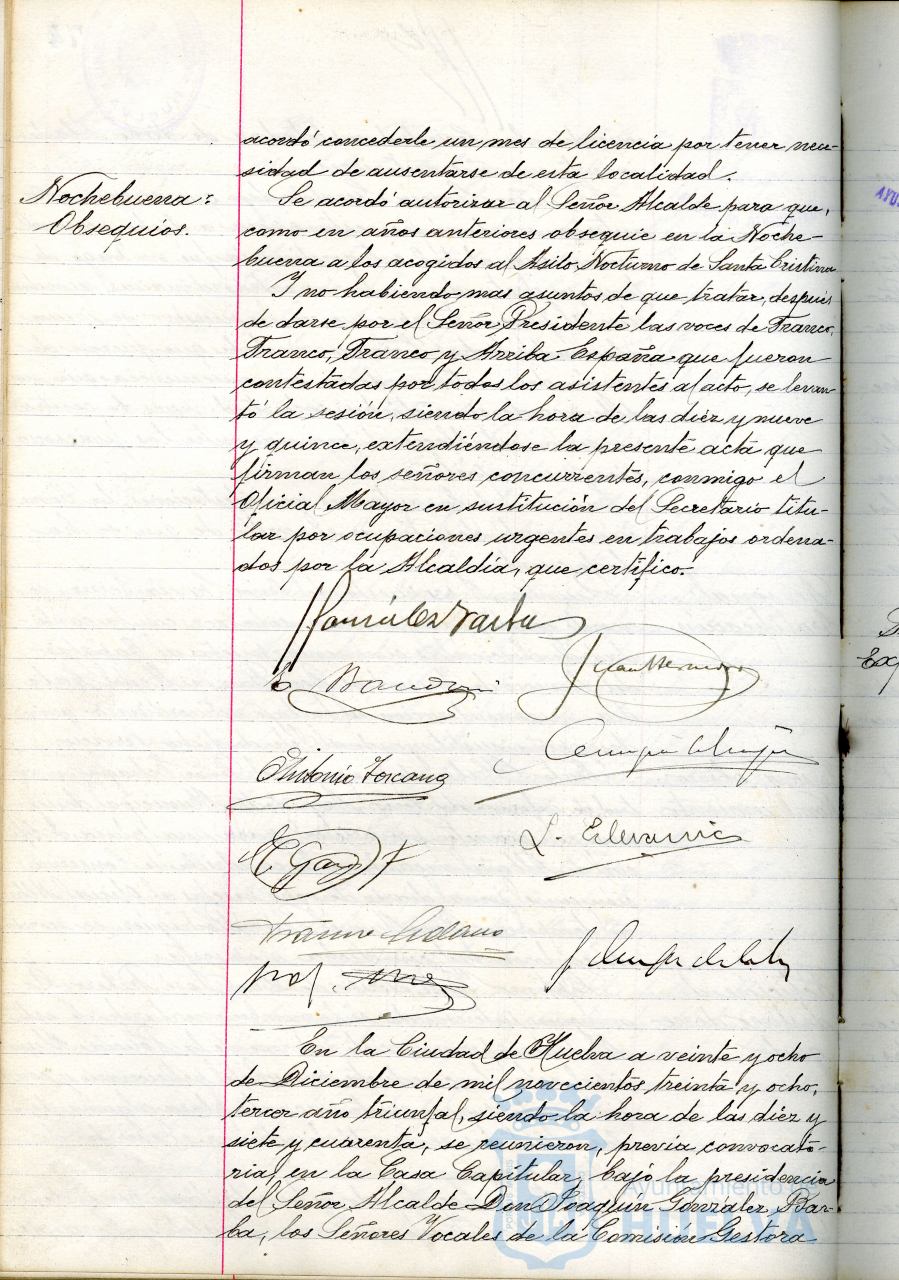 acordó concederle un mes de licencia por tener nece-
sidad de ausentarse de esta localidad.
Nochebuena:
Obsequios.
Se acordó autorizar al Señor Alcalde para que,
como en años anteriores obsequie en la Noche-
buena a los acogidos al Asilo Nocturno de Santa Cristina
Y no habiendo mas asuntos de que tratar, después
de darse por el Señor Presidente las voces de Franco,
Franco, Franco y Arriba España que fueron
contestadas por todos los asistentes al acto, se levan-
tó la sesión, siendo la hora de las diez y nueve
y quince, extendiéndose la presente acta que
firman los señores concurrentes, conmigo el
Oficial Mayor en sustitución del Secretario titu-
lar por ocupaciones urgentes en trabajos ordena-
dos por la Alcaldía, que certifico.
González Barba
Antonio Toscano
En la Ciudad de Huelva a veinte y ocho
de Diciembre de mil novecientos treinta y ocho,
tercer año triunfal, siendo la hora de las diez y
siete y cuarenta, se reunieron, previa convocato-
ria, en la Casa Capitular, bajo la presidencia
del Señor Alcalde Don Joaquín González Bar-
ba, los Señores Vocales de la Comisión Gestora
Ayuntamiento de
HUELVA